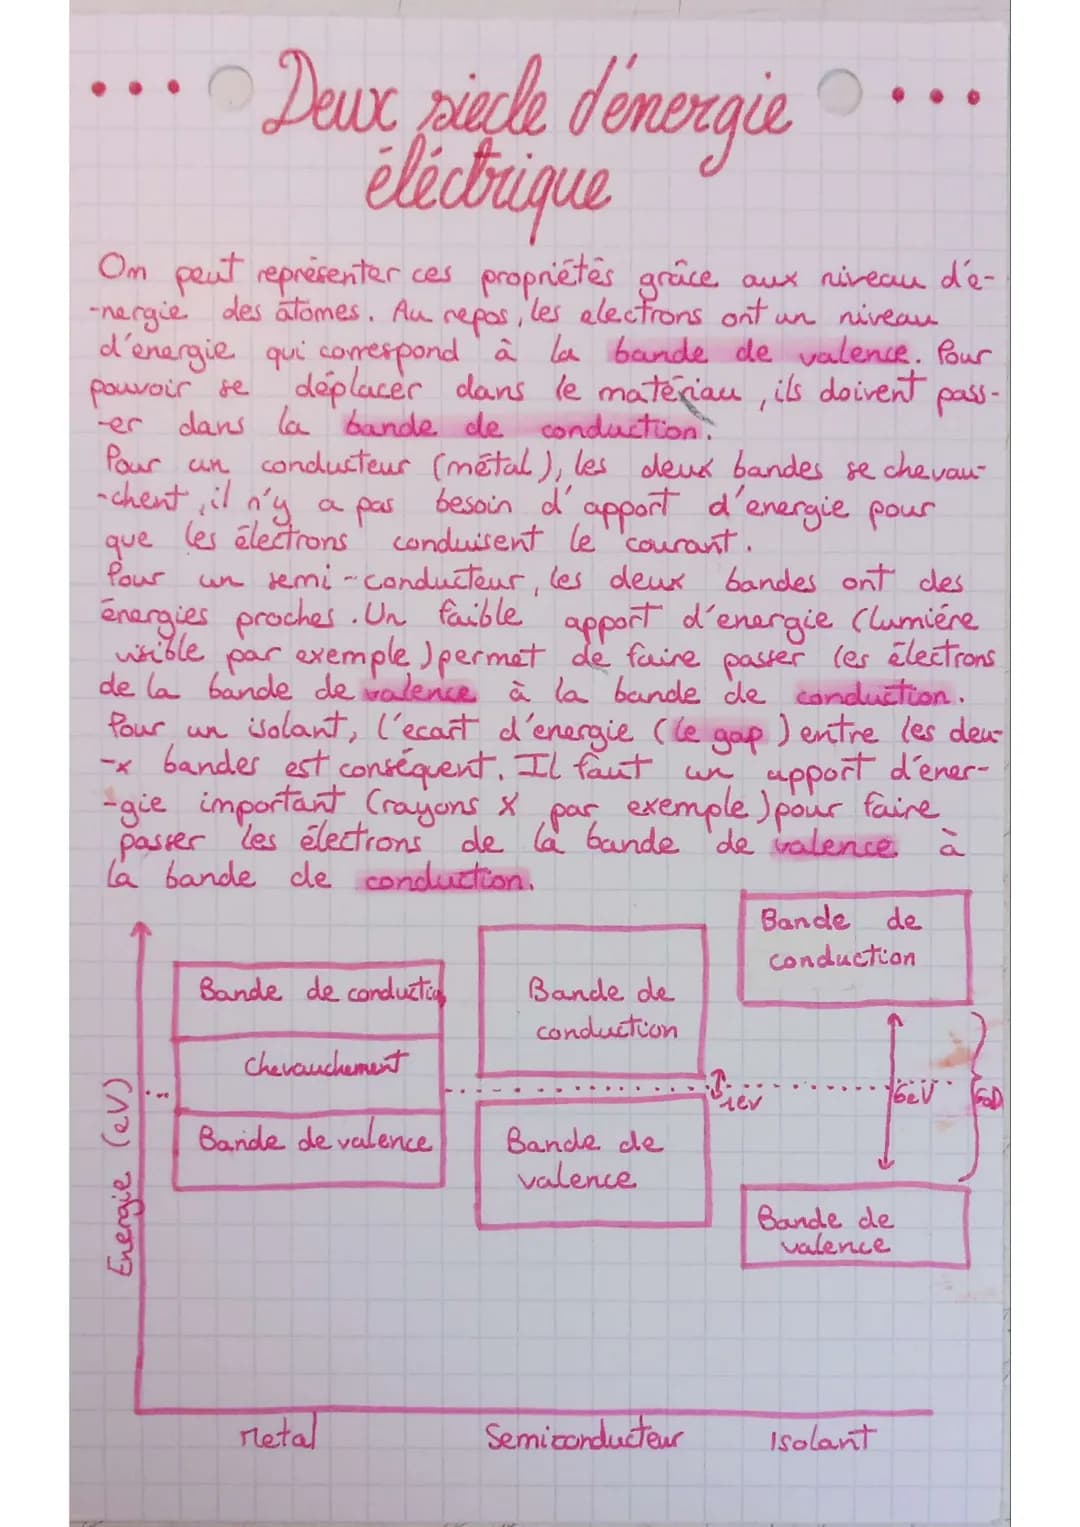 Deux siecle d'énergie
éléctrique
On peut représenter ces propriétés grâce aux niveau d'é-
-nergie des atomes. Au repos, les electrons ont un niveau
d'énergie qui correspond à la bande de valence. Pour
pouvoir se déplacer dans le matériau, ils doivent pass-
-er dans la bande de conduction.
Pour un conducteur (métal), les deux bandes se chevau-
-chent, il n'y a pas besoin d'apport d'énergie pour
que les électrons conduisent le courant.
Pour un semi-conducteur, les deux bandes ont des
énergies proches. Un faible apport d'energie (lumiére
visible par exemple) permet de faire passer les électrons
de la bande de valence à la bande de conduction.
Pour un isolant, l'ecart d'energie (le gap) entre les deu-
-x bandes est conséquent. Il faut un apport d'éner-
-gie important (rayons X par exemple) pour faire
passer les électrons de la bande de valence à
la bande de conduction.
Energie (eV)
Bande de conduction
Chevauchement
Bande de valence
Bande de
conduction
1eV
Bande de
valence
Bande de
conduction
6eV
Bande de
valence
Metal
Semiconducteur
Isolant